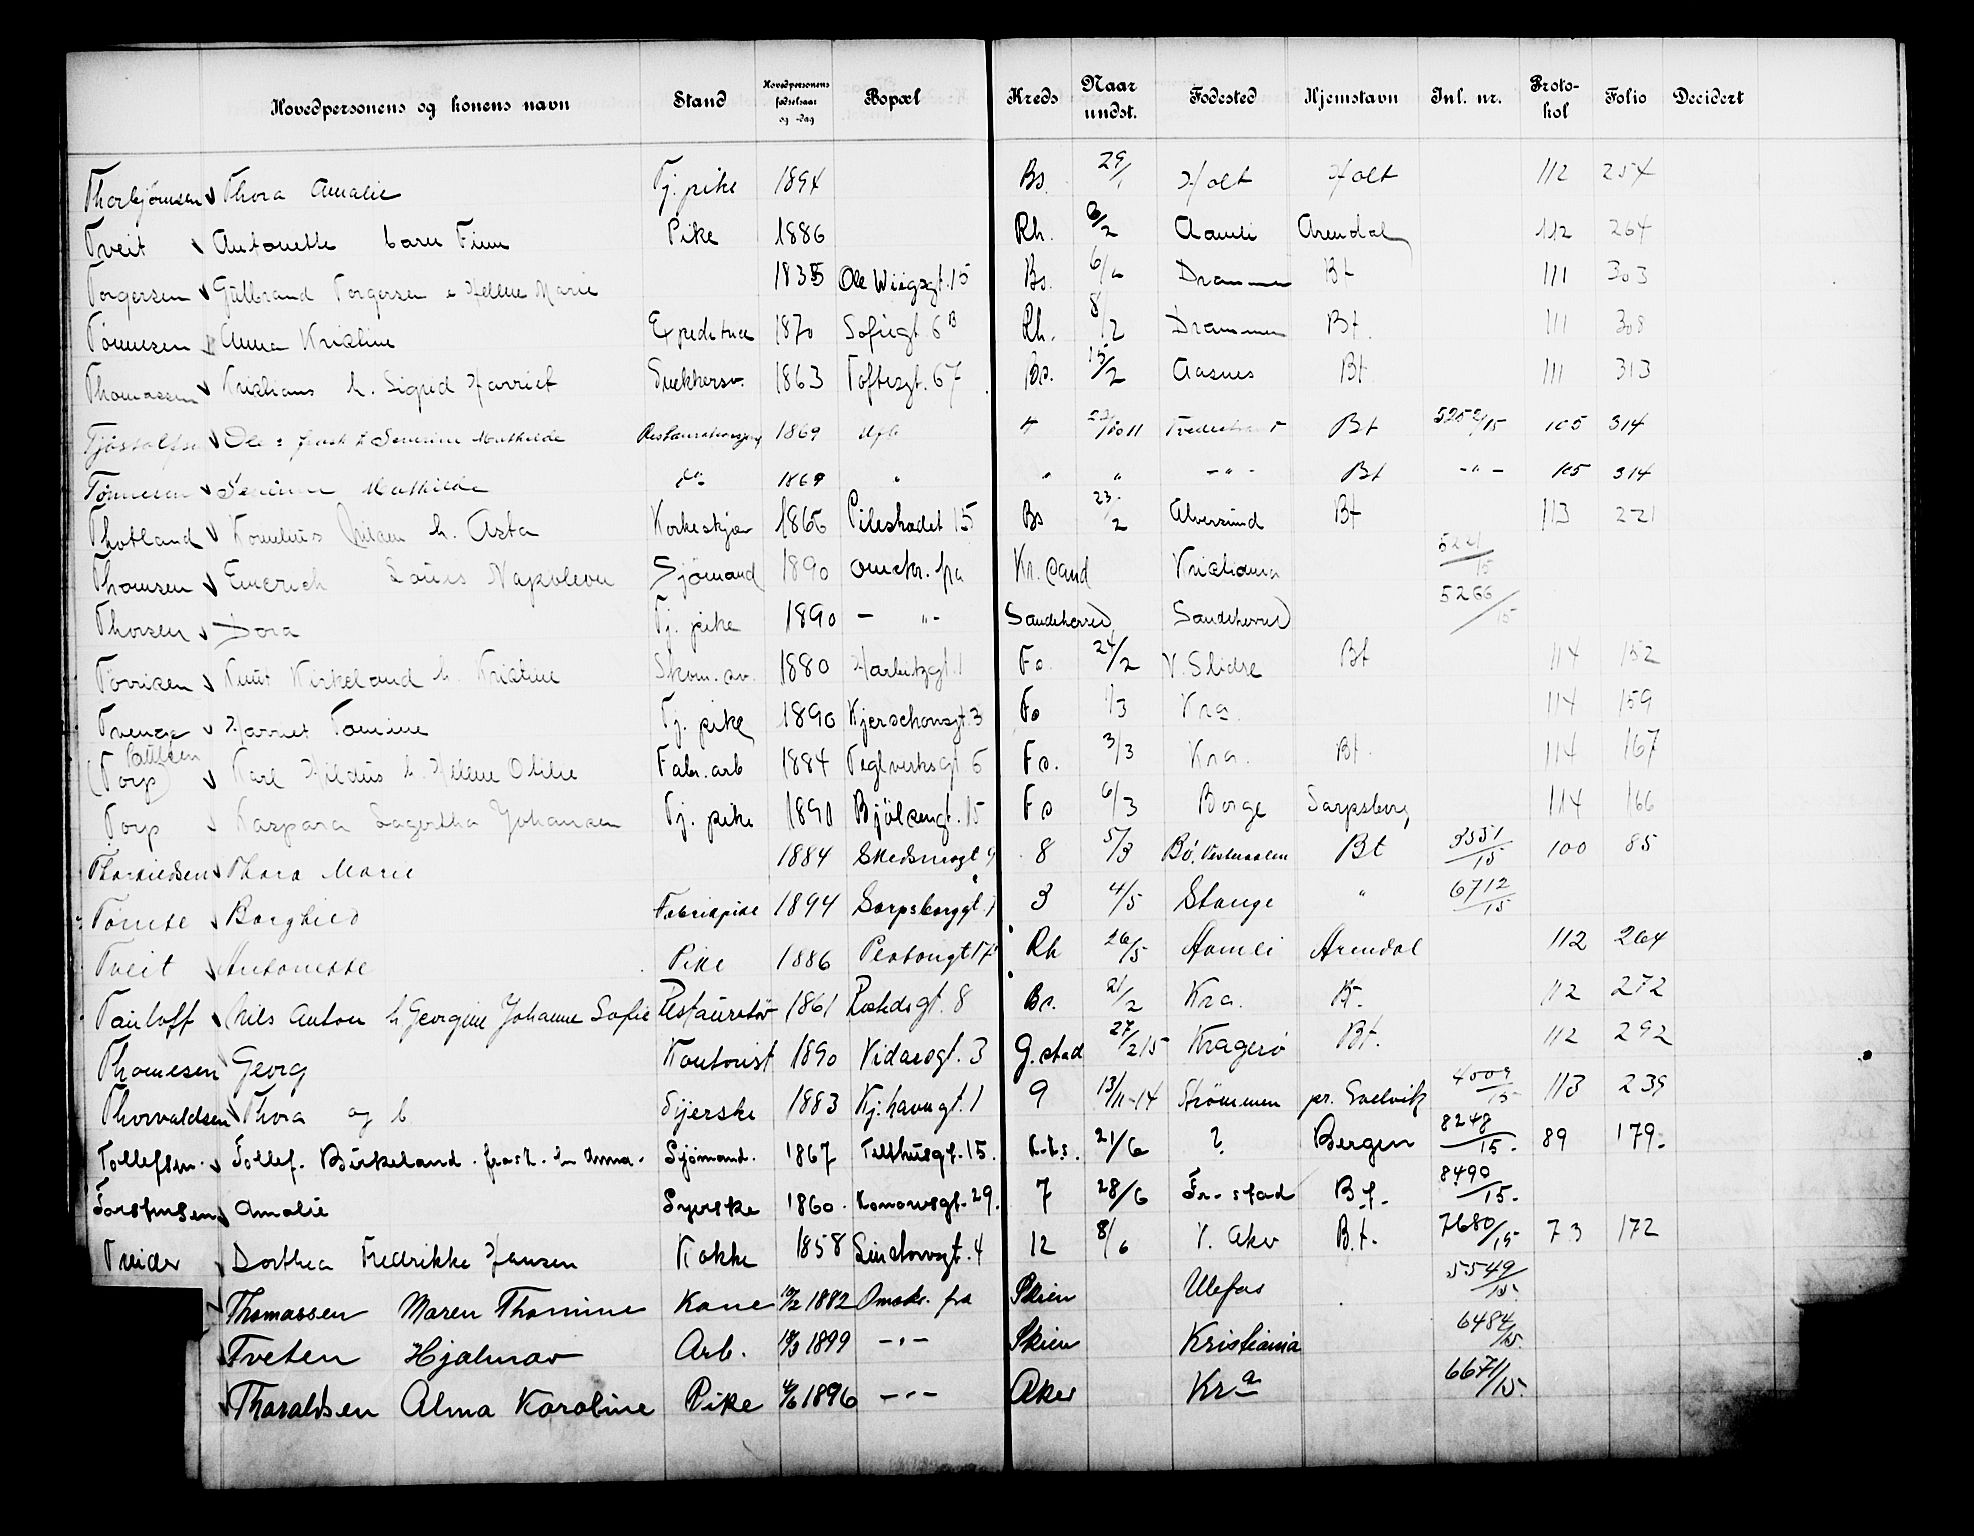 Hovedpersonens og konens navn Stand Hovedpersonens fødselsaar og -dag Bopæl Kreds Naar undst. Fødested Hjemstavn Inl. nr. Protokol Folio Decidert
Thorbjørnsen Thora Amalie Tj. pike 1894 Bs. 29/1 Holt Holt 112 254
Tveit Antonette barn Finn Pike 1886 Rh. 6/2 Aamli Arendal 112 264
Torgersen Gulbrand Torgersen e Hellene Marie 1835 Ole Wiigsgt. 15 Bs. Drammen Bt 111 303
Tønnesen Anna Kristine Expeditrice 1870 Sofiegt 6 B Rh. 8/2 Drammen Bt. 111 308
Thomassen Kristians h. Sigrid Harriet Snekkersv. 1863 Toftesgt. 67 Bs. 15/2 Aasnes Bt 111 313
Ole Severine Mathilde 1869 Bt 5252/15 105 314
Tønnesen Severine Mathilde do 1869 " " " - " - Bt - " - 105 314
Thotland Kornelius Nilsen h. Asta Korkeskjær 1866 Pilestrædet 15 Bs 23/2 Alversund Bt 113 221
Thomsen Emerich Louis Napoleon Sjømand 1890 omskr. fra Kr. sand Kristiania 5221/15
Thorsen Dora Tj. pike 1890 — " - Sandeherred Sandeherred 5266/15
Knut Kirkeland h. Kristine Skom. sv. 1880 Harbitzgt. 1 Fo. 24/2 V. Slidre Bt 114 152
Harriet Tomine Tj. pike 1890 Kjerschowsgt. 3 Fo 1/3 Kra. 114 159
(Torp) Paulsen Karl Hildus h. Hellene Otilie Fabr. arb 1884 Teglverksgt 6 Fo. 3/3 Kra. Bt. 114 167
Torp Kaspara Lagertha Johansen Tj. pike 1891 Bjølsengt. 15 Fo 6/3 Borge Sarpsborg 114 166
Thora Marie 1884 Skedsmogt 8 5/3 Bø, Vesteraalen Bt 3551/15 100 85
Tomte Borghild Fabrikpike 1894 Sarpsborggt. 1 3 4/5 Stange " 6712/15
Tveit Antonette Pike 1886 Rh 26/5 Aamli Arendal 112 264
Nils Anton h Georgine Johanne Sofie Restauratør 1861 8 Bs. 21/2 Kra. Bt. 112 272
Thomesen Georg Kontorist 1890 Vidarsgt. 3 G. stad 27/2 15 Kragerø Bt. 112 292
Thorvaldsen Thora og b Sijerske 1883 Kj. havngt. 1 9 13/11-14 Strømmen pr. Svelvik 4009/15 113 239
Tollefsen Tollef. Birkeland. frask. h. Anna. Sjømand. 1867 Telthusgt. 15. 21/6 ? Bergen 8248/15. 89 179.
Torstensen Amalie Syerske 1860. Konowsgt. 29. 7 28/6 Fr-stad Bt. 8490/15.
Treider Dorthea Fredrikke Hansen Kokke 1858 Lindowsgt. 4 12 8/6 V. Aker B.t. 7680/15 73 172
Thomassen Maren Thomine Kone 1882 Omskr. fra Skien Ulefos 5549/15.
Tveten Hjalmar Arb. 1899 — " — Skien Kristiania 6484/15.
Tharaldsen Alma Karoline Pike 1896 — " — Aker Kra 6671/15.